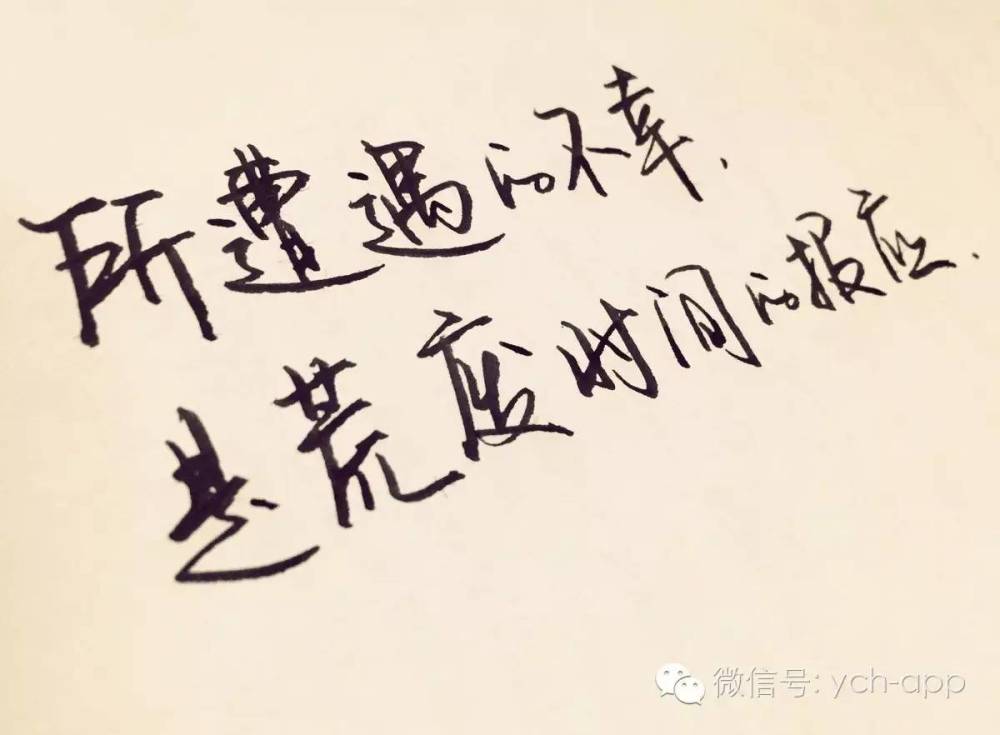 所遭遇的不幸.
是荒度时间的报应.
微信号: ych-app